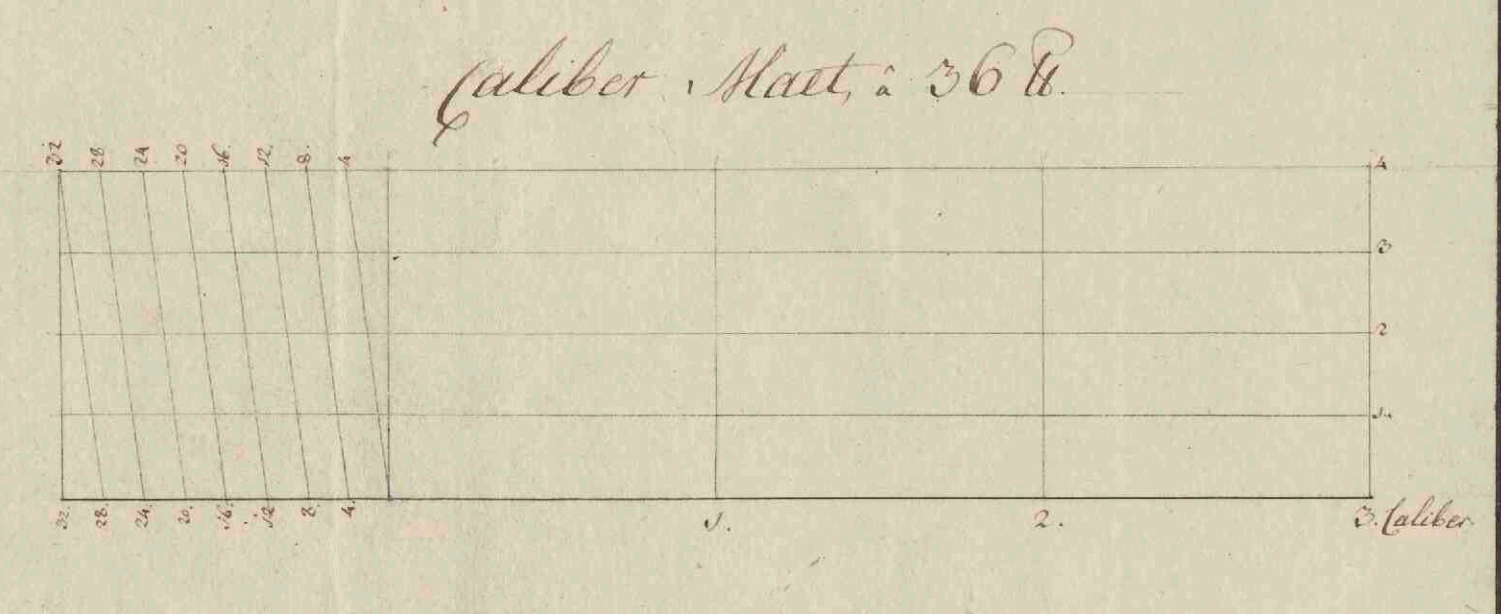 Caliber Maet, â 36 ℔.
32 28 24 20 16. 12. 8. 4
4
3
2
1.
32. 28. 24. 20. 16. 12 8. 4. 1. 2. 3. Caliber.